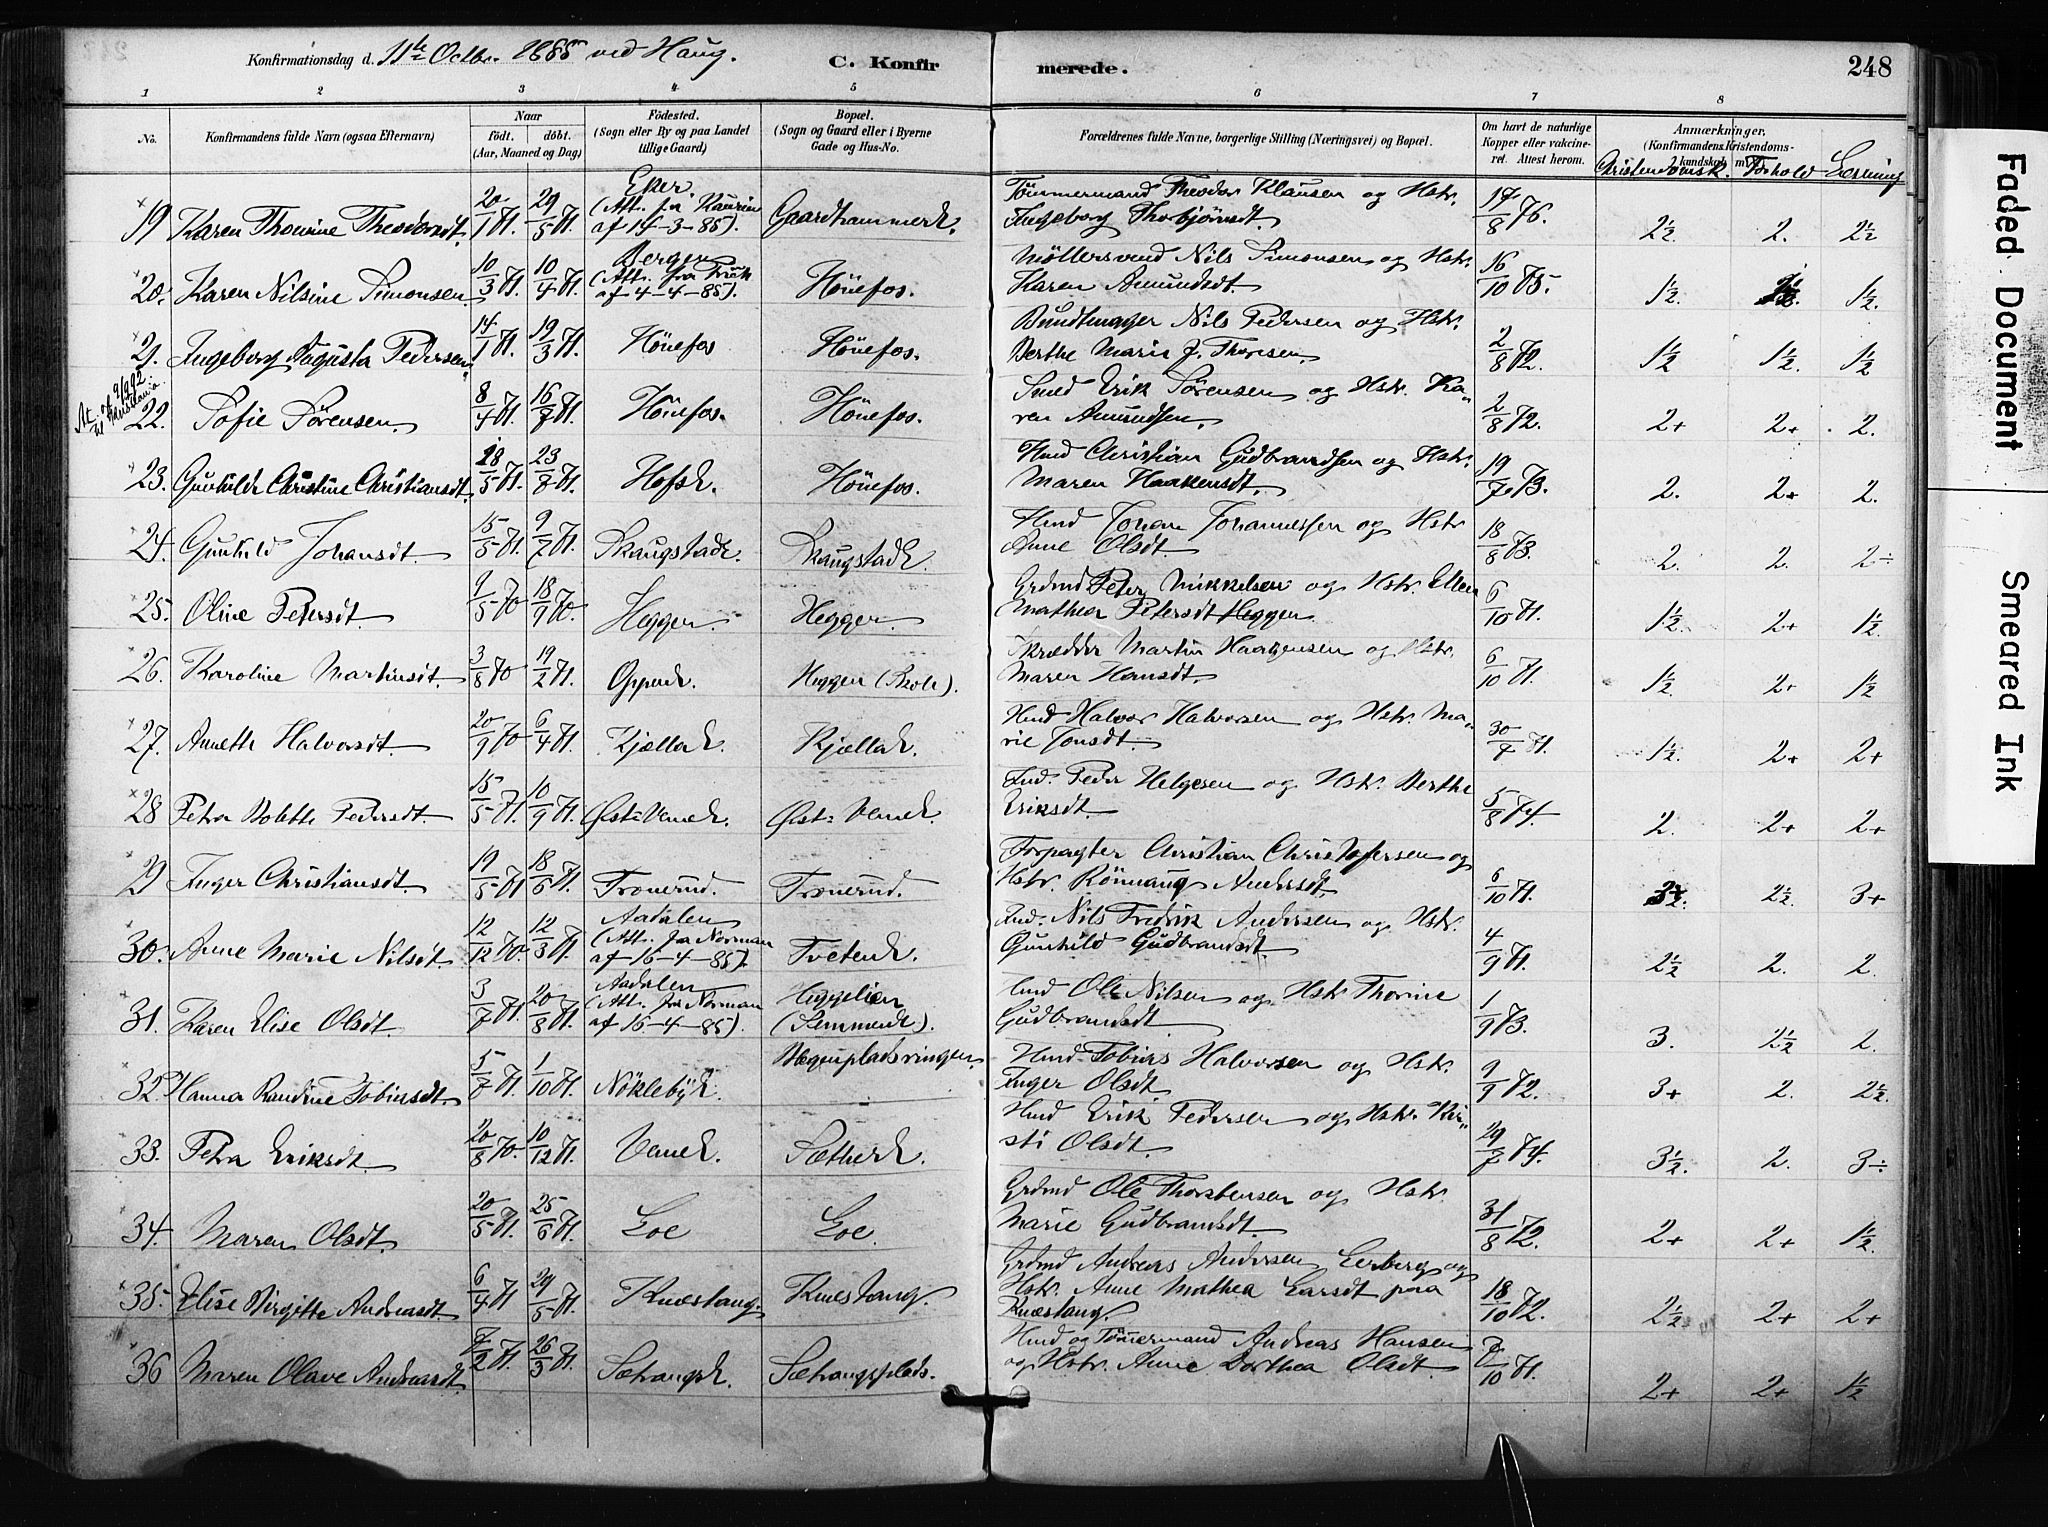 Konfirmationsdag d. 11te Octbr. 1885 ved Haug.
C. Konfirmerede.
248
1 2 3 4 5 6 7 8
No.
Konfirmandens fulde Navn (ogsaa Efternavn)
Naar
födt. döbt.
(Aar, Maaned og Dag)
Födested.
(Sogn eller By og paa Landet
tillige Gaard)
Bopæl.
(Sogn og Gaard eller i Byerne
Gade og Hus-No.
Forældrenes fulde Navne, borgerlige Stilling (Næringsvei) og Bopæl.
Om havt de naturlige
Kopper eller vakcine-
ret. Attest herom.
Anmærkninger.
(Konfirmandens Kristendoms-
kundskab m. m.)
Christendomsk. Forhold Lærning
19 Karen Thomine Theodorsdt. 20/1 71. 29/5 71. Eker. (Att. fra Kaurin af 14-3-85). Gaardhammerk. Tömmermand Theodor Klausen og Hstr. Ingeborg Thorbjörnsdt. 17/8 76. 2½. 2. 2½
20. Karen Nilsine Simonsen. 10/3 71. 10/4 71. Bergen (Att. fra af 4-4-85). Hönefos. Möllersvend Nils Simonsen og Hstr. Karen Amundsdt. 16/10 75. 1½. 1½.
21. Ingeborg Augusta Pedersen. 14/1 71. 19/3 71. Hönefos Hönefos. Bundtmager Nils Pedersen og Hstr. Berthe Marie J. Thoresen. 2/8 72. 1½ 1½. 1½
At. af 9/9 92 til Kristiania
22. Sofie Sörensen. 8/4 71. 16/7 71. Hönefos. Hönefos. Smed Erik Sörensen og Hstr. Karen Amundsen. 2/8 72. 2+ 2+ 2.
23. Gunhilde Christine Christiansdt. 18/5 71. 23/8 71. Hofsk. Hönefos. Hmd Christian Gudbrandsen og Hstr. Maren Haakensdt. 19/7 73. 2. 2+ 2.
24. Gunhild Johansdt 15/5 71. 9/7 71. Skaugstadk. Skaugstadk. Hmd Johan Johannessen og Hstr Anne Olsdt. 18/8 73. 2. 2. 2÷
25. Oline Petersdt. 9/5 70 18/9 70. Heggen. Heggen. Grdmd Peter Mikkelsen og Hstr. Ellen Mathea Petersdt Heggen 6/10 71. 1½. 2+ 1½.
26. Karoline Martinsdt. 3/8 70 19/2 71. Oppenk. Heggen Skrædder Martin Haagensen og Hstr. Maren Hansdt. 6/10 71. 1½. 2+ 1½
27. Annette Halvorsdt. 20/9 70 6/4 71. Kjællak. Kjællak. Hmd Halvor Halvorsen og Hstr. Marie Jonsdt. 30/7 71. 1½. 2+ 2+
28 Petra Bolette Pedersdt. 15/5 71. 10/9 71. Öst-Vemek. Öst-Vemek. Ind. Peder Helgesen og Hstr. Berthe Eriksdt. 5/8 74. 2. 2+ 2+
29 Inger Christiansdt 19/5 71 18/6 71. Tronerud. Tronerud. Forpagter Christian Christofersen og Hstr. Rönnaug Andersdt 6/10 71. 2½. 3+
30. Anne Marie Nilsdt. 12/12 70. 12/3 71. Aadalen (Att. fra Norman af 16-4-85). Tvetenk. Ind. Nils Fredrik Andersen og Hstr. Gunhild Gudbrandsdt. 4/9 71. 2½ 2. 2.
31. Karen Elise Olsdt. 3/7 71. 20/8 71. Aadalen (Att. fra Norman af 16-4-85). Heggelien (Semmenk). Hmd Ole Nilsen og Hstr Thorine Gudbrandsdt. 1/9 73. 3. 2½ 2.
32. Hanna Randine Tobiasdt. 5/7 71. 1/10 71. Nöklebyk. Hmd. Tobias Halvorsen og Hstr. Inger Olsdt. 9/9 72. 3+ 2. 2½.
33. Petra Eriksdt. 20/8 70. 10/12 71. Vemek. Sætherk. Hmd Erik Pedersen og Hstr. Kirsti Olsdt. 29/7 74. 3½. 2. 3÷
34. Maren Olsdt. 20/5 71. 25/6 71. Loe Loe. Grdmd Ole Thorstensen og Hstr. Marie Gudbrandsdt. 31/8 72. 2+ 2+ 1½.
35. Elise Birgitte Andreasdt. 6/4 71 29/5 71. Knestang. Knestang. Grdmd Andreas Andersen Lerberg og Hstr. Anne Mathea Larsdt paa Knæstang. 18/10 72. 2½ 2+ 2+
36 Maren Olave Andreasdt. 7/2 71. 26/3 71. Sætrangsk. Sætrangsplads. Hmd og Tömmermand Andreas Hansen og Hstr. Anne Dorthea Olsdt. 7/10 71. 2+ 2+ 1½
Faded Document
Smeared Ink